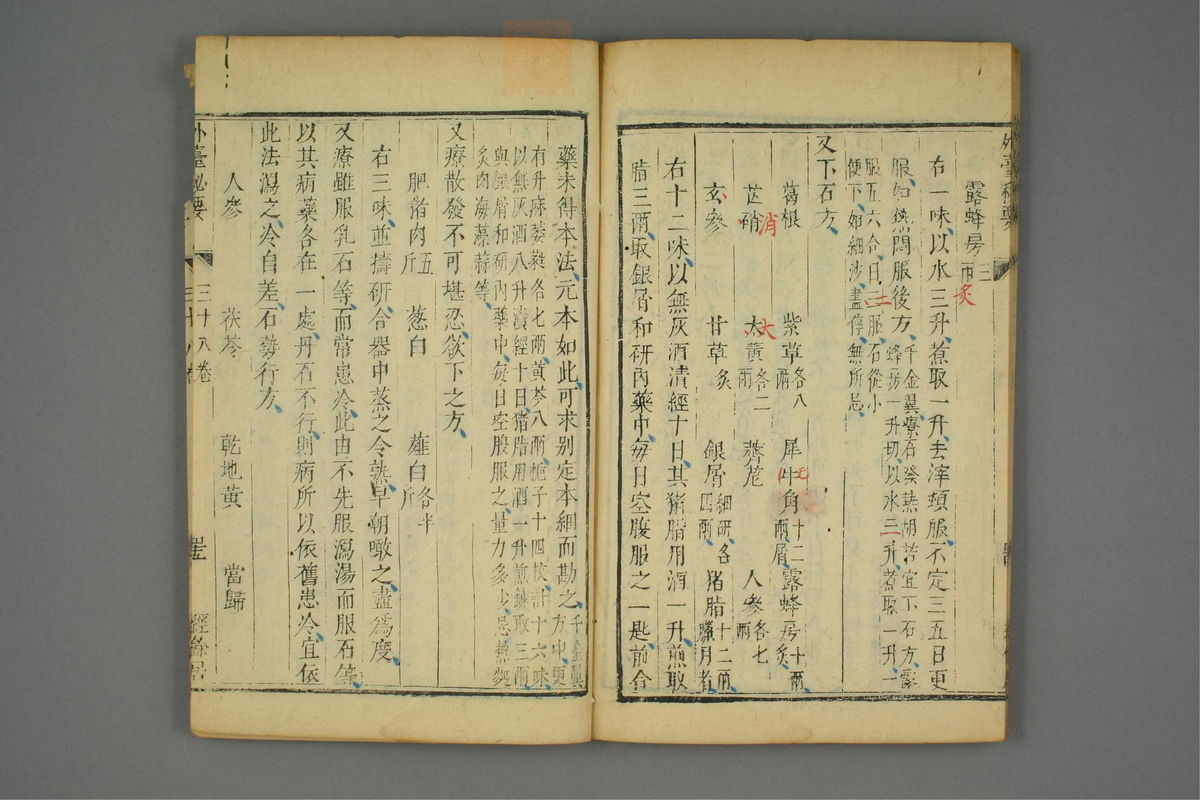 外臺秘要
露蜂房三兩
炙
右一味以水三升煮取一升去滓頓服不定三五日更
服如熱悶服後方千金翼療石發熱烦苦宜下石方露
蜂房一升切以水三升煮取一升一
服五六合日二服石從小
三
便下如細沙盡停無所忌
又下石方
葛根 紫草各八兩 犀牛角十二兩屑 露蜂房十兩炙
芒硝 太黃各二兩 薺苨 人參各七兩
消
大
玄參 甘草炙 銀屑細研各四兩 猪脂十二兩臘月者
右十二味以無灰酒漬經十日其猪脂用酒一升煎取
脂三兩取銀屑和研內藥中每日空腹服之一匙前合
藥未得本法元本如此可求别定本細而勘之千金翼方中更
有升麻萎蕤各七兩黃芩八兩梔子十四枚計十六味
以無灰酒八升漬經十日猪脂用酒一升煎鍊取三兩
與銀屑和研內藥中每日空腹服之量力多少忌蕪荑
炙肉海藻蒜等
又療散發不可堪忍欲下之方
肥猪肉五斤 葱白 薤白各半斤
右三味並擣研合器中蒸之令熟早朝噉之盡為度
又療雖服乳石等而常患冷此由不先服瀉湯而服石等
以其病藥各在一處丹石不行則病所以依舊患冷宜依
此法瀉之冷自差石勢行方
人參 茯苓 乾地黃 當歸
外臺秘要 三十八卷 經餘居